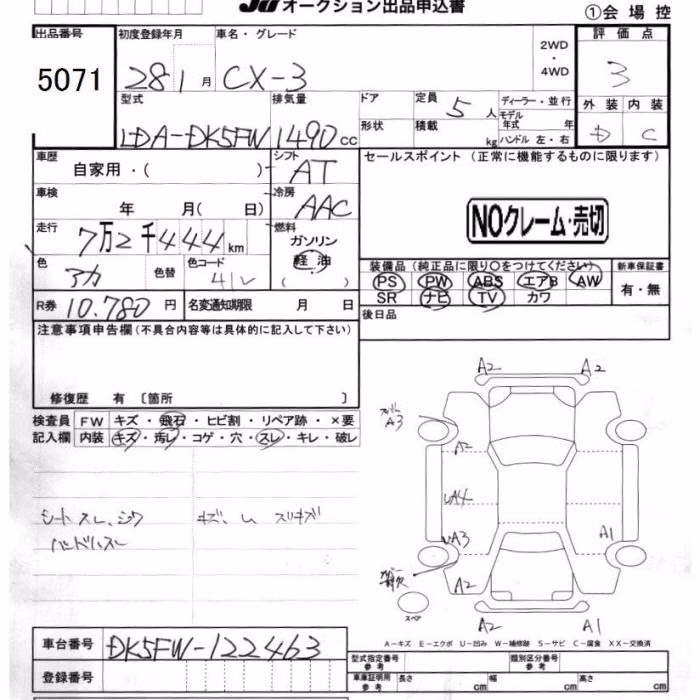 JU オークション出品申込書
①会場控
出品番号 5071
初度登録年月 28 1月
車名・グレード CX-3
2WD・4WD
評価点 3
外装 D 内装 C
型式 LDA-DK5FW
排気量 1490cc
ドア
形状
定員 5人
積載 kg
ディーラー・並行
モデル年式 年
ハンドル 左・右
車歴 自家用・( )
シフト AT
セールスポイント(正常に機能するものに限ります)
NOクレーム・売切
車検 年 月( 日)
冷房 AAC
走行 7万2千444km
燃料 ガソリン 軽油 ( )
色 アカ 色替
色コード 41V
装備品(純正品に限り○をつけてください)
PS PW ABS エアB AW
SR ナビ TV カワ
新車保証書 有・無
R券 10.780円
名変通知期限 月 日
後日品
注意事項申告欄(不具合内容等は具体的に記入して下さい)
修復歴 有〔箇所 〕
検査員記入欄
FW キズ・飛石・ヒビ割・リペア跡・×要
内装 キズ・汚レ・コゲ・穴・スレ・キレ・破レ
シートスレ、シワ
キズ、ム スリキズ
ハンドルスレ
A2 A2
A3
A2
UA4
UA3 A1
A2
スペア
A2 A1
A-キズ E-エクボ U-凹み W-補修跡 S-サビ C-腐食 XX-交換済
車台番号 DK5FW-122463
登録番号
型式指定番号 参考
類別区分番号 参考
車庫証明用 参考
長さ cm 幅 cm 高さ cm